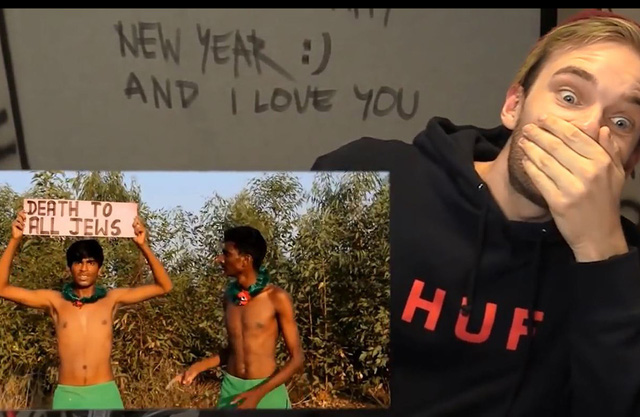 NEW YEAR :)
AND I LOVE YOU
DEATH TO
ALL JEWS
HUF